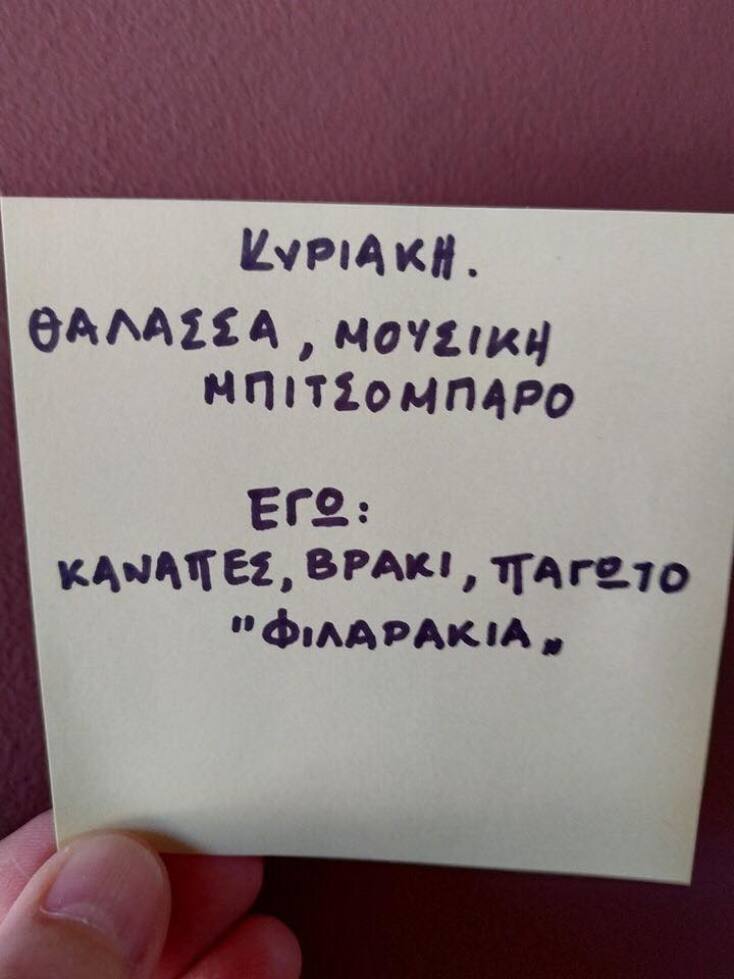 ΚΥΡΙΑΚΗ.
ΘΑΛΑΣΣΑ, ΜΟΥΣΙΚΗ
ΜΠΙΤΣΟΜΠΑΡΟ
ΕΓΩ:
ΚΑΝΑΠΕΣ, ΒΡΑΚΙ, ΠΑΓΩΤΟ
"ΦΙΛΑΡΑΚΙΑ„